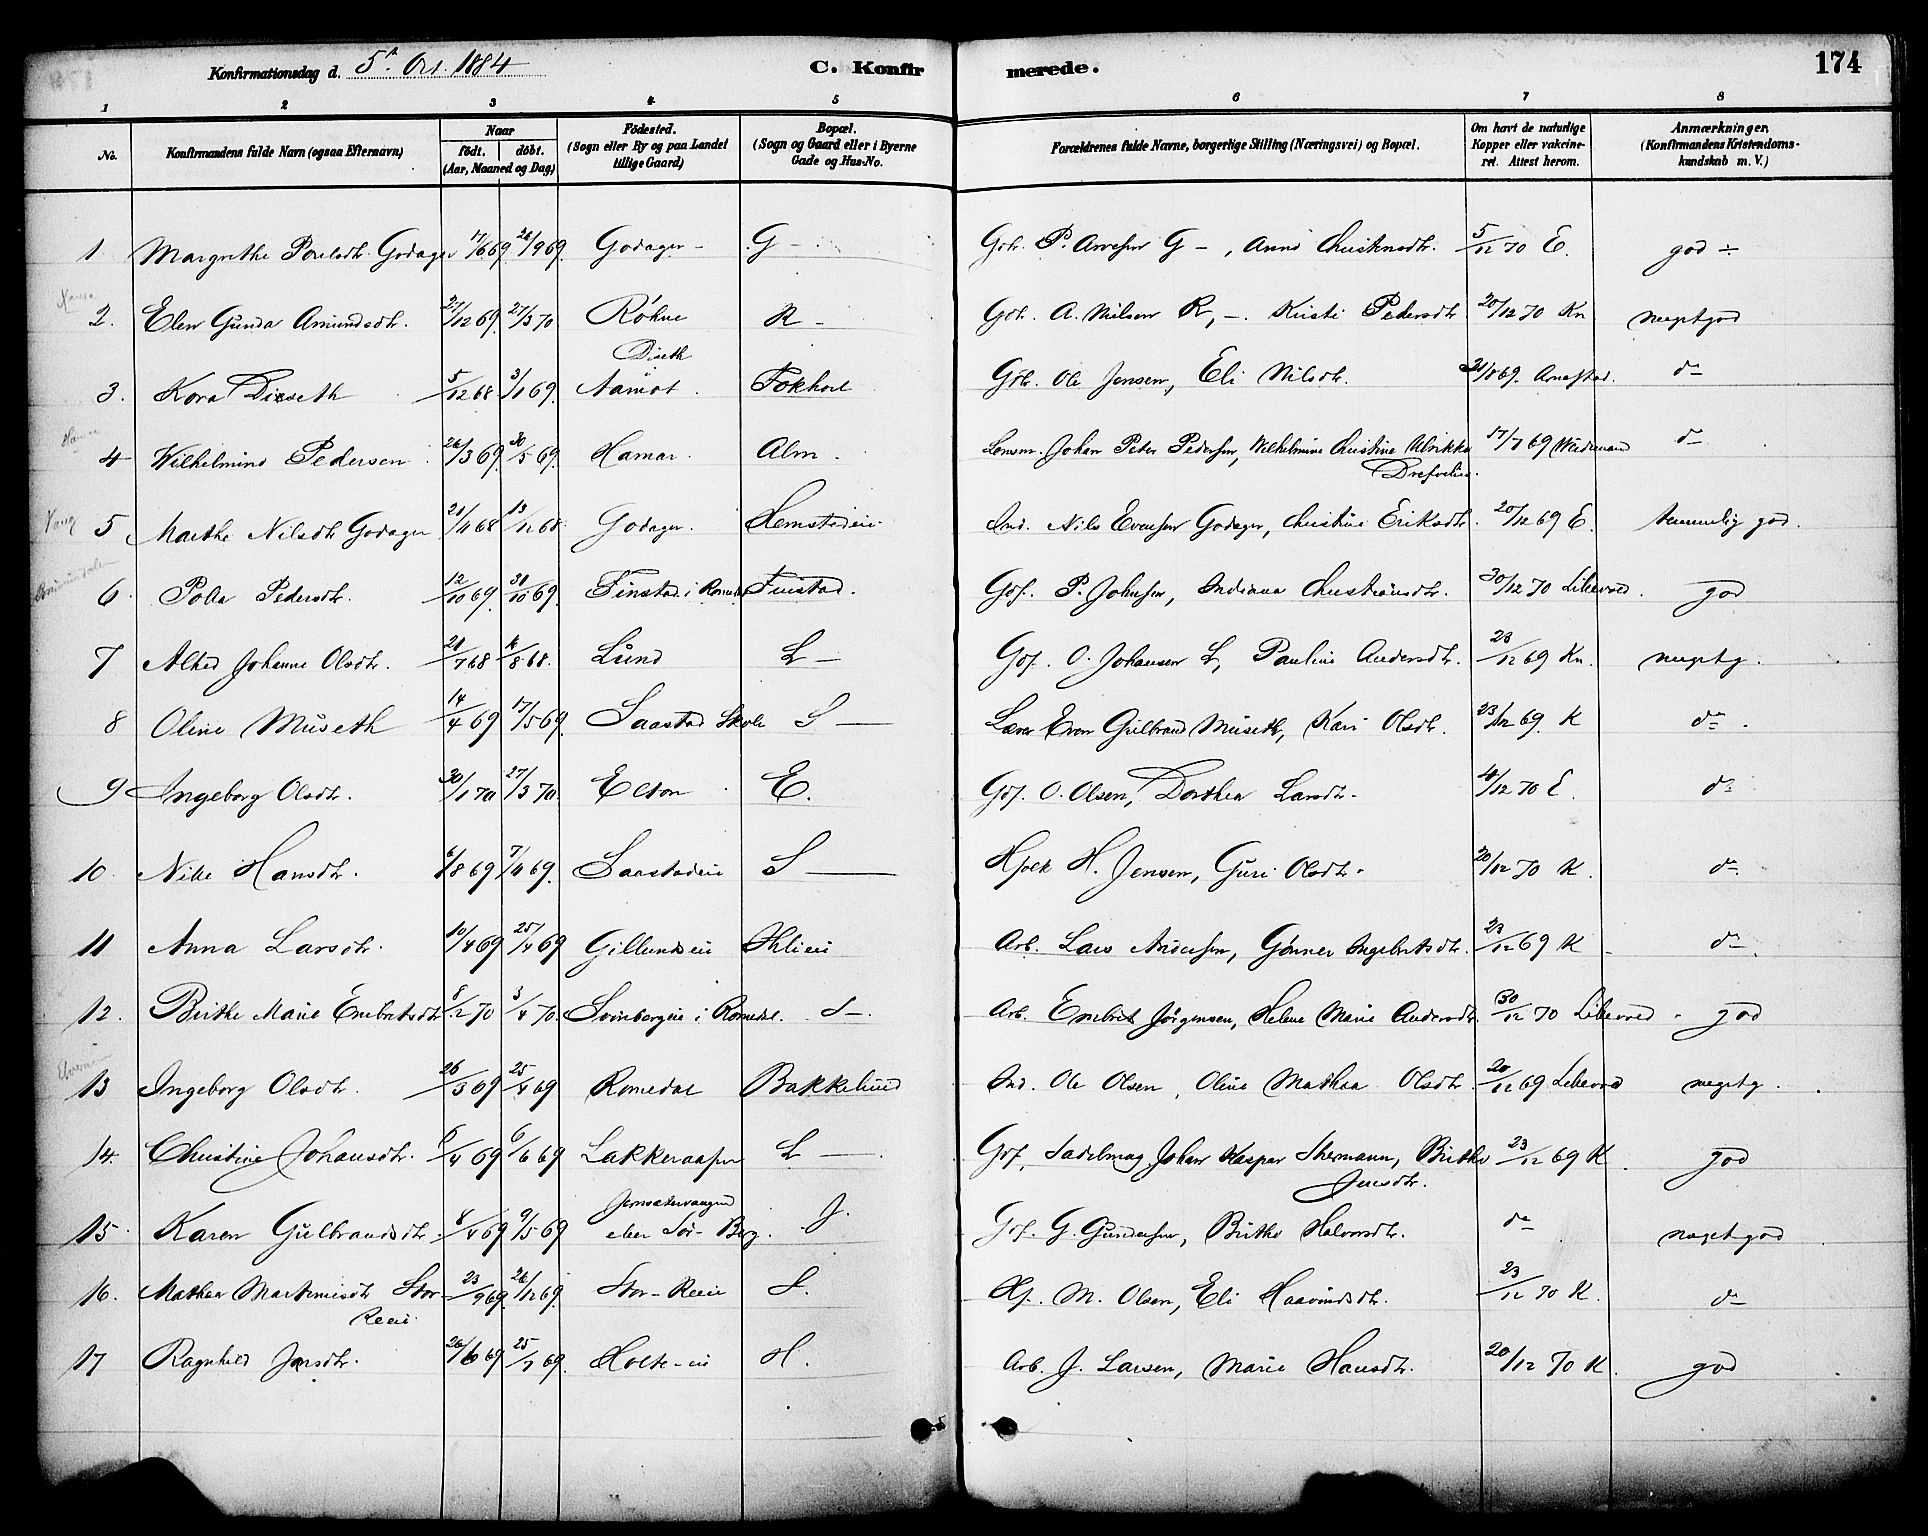 Konfirmationsdag d. 5te Oct. 1884 C. Konfirmerede. 174
1 2 3 4 5 6 7 8
No. Konfirmandens fulde Navn (ogsaa Efternavn) Naar født. døbt. (Aar, Maaned og Dag) Fødested. (Sogn eller By og paa Landet tillige Gaard) Bopæl. (Sogn og Gaard eller i Byerne Gade og Hus-No. Forældrenes fulde Navne, borgerlige Stilling (Næringsvei) og Bopæl. Om havt de naturlige Kopper eller vakcineret. Attest herom. Anmærkninger. (Konfirmandens Kristendomskundskab m. V.)
1 Margrethe Povelsdtr. Godager 17/6 69 26/9 69. Godager - G - Gbr. P. Arvesen G -, Anne Christensdtr. 5/12 70 E. god ÷
2. Elen Gunda Amundsdtr. 27/12 69. 27/3 70 Røhne R - Gbr. A. Nilsen R, -. Kristi Pedersdtr 20/12 70 Kn megetgod
3. Kora Diseth 5/12 68 3/1 69. Diseth Aamot. Fokhol Gbr. Ole Jensen, Eli Nilsdtr. 31/8 69. do
4 Wilhelmine Pedersen 26/3 69. 30/5 69. Hamar. Alm. Lensm. Johan Peter Pedersen, Wilhelmine Christine Ulrikke 17/7 69 do
Vang 5 Marthe Nilsdtr Godager 21/11 68 13/12 68. Godager. Hemstadeie Ind. Nils Evensen Godager, Christine Eriksdtr. 20/12 69 E. temmelig god.
6. Polla Pedersdtr. 12/10 69. 31/10 69. Finstad i Romedal Finstad. Gbf. P. Johnsen, Indiana Christiansdtr. 30/12 70 Lilleved. god
7 Alhed Johanne Olsdtr. 21/7 68 16/8 68. Lund L - Gbf. O. Johansen L, Pauline Andersdtr. 23/12 69 Kn. megetg.
8 Oline Museth 14/4 69 17/5 69. Saastad Skole S - Lærer Even Gulbrand Museth, Kari Olsdtr. 23/12 69. K do.
9 Ingeborg Olsdtr. 30/1 70 27/3 70. Elton E. Gbf. O. Olsen, Dorthea Larsdtr. 4/12 70 E. do
10. Nille Hansdtr. 6/8 69 7/11 69. Saastadeie S - H. Jensen, Guri Olsdtr. 20/12 70 K. do
11 Anna Larsdtr. 10/4 69 25/4 69 Gillundseie Ihlieie Arb. Lars Andersen, Gønner Ingebretsdtr. 23/12 69 K do
12. Birthe Marie Embretsdtr 8/2 70 3/4 70. Svinbergeie i Romedal. S -. Arb. Embret Jørgensen, Helene Marie Andersdtr. 30/12 70 Lilleved. god
13 Ingeborg Olsdtr. 26/3 69 25/4 69 Romedal Bakkelund Ind. Ole Olsen, Oline Mathea Olsdtr. 20/12 69 Lilleved megetg.
14. Christine Johansdtr. 6/4 69 6/6 69 Lakkeraasen L -. Gbf. Sadelmag. Johan Kaspar Thermann, Birthe Jensdtr. 23/12 69 K. god
15. Karen Gulbrandsdtr. 8/4 69 9/5 69 eller Sør-Berg. J. Gbf. G. Gundersen, Birthe Halvorsdtr. do megetgod
16. Mathea Martinusdtr Stor- 23/9 69 26/12 69. Stor-Reeie S. Hf. M. Olsen, Eli Haavindsdtr. 23/12 70 K. do
Reeie
17 Ragnhild Jensdtr. 26/6 69 25/7 69. Holte-eie H. Arb. J. Larsen, Marie Hansdtr. 20/12 70 K. god